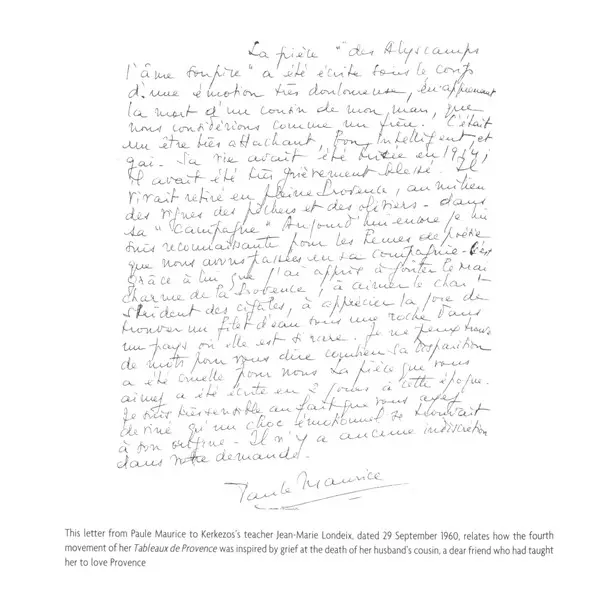 La pièce "des Alyscamps
l'âme soupire" a été écrite sous le coup
d'une émotion très douloureuse, en apprenant
la mort d'un cousin de mon mari, que
nous considérions comme un frère. C'était
un être très attachant, bon, intelligent, et
gai. Sa vie avait été brisée en 1944,
il avait été très grièvement blessé. Il
vivait retiré en pleine Provence, au milieu
des vignes des pêchers et des oliviers - dans
sa "campagne" Aujourd'hui encore je lui
suis reconnaissante pour les heures de
que nous avons passées en sa compagnie - C'est
grâce à lui que j'ai appris à goûter le vrai
charme de la Provence, à aimer le chant
strident des cigales, à apprécier la joie de
trouver un filet d'eau sous une roche dans
un pays où elle est si rare. Je ne peux trouver
de mots pour vous dire combien sa disparition
a été cruelle pour nous La pièce que vous
aimez a été écrite en 2 jours à cette époque.
Je suis très sensible au fait que vous ayez
deviné qu'un choc émotionnel se trouvait
à son origine - Il n'y a aucune indiscrétion
dans votre demande.
Paule Maurice
This letter from Paule Maurice to Kerkezos's teacher Jean-Marie Londeix, dated 29 September 1960, relates how the fourth
movement of her Tableaux de Provence was inspired by grief at the death of her husband's cousin, a dear friend who had taught
her to love Provence